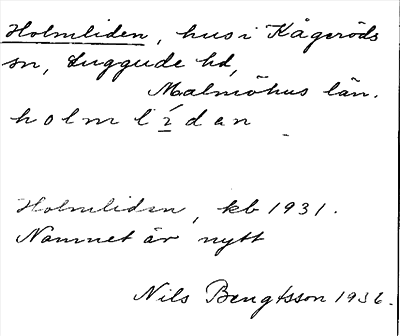 Holmliden, hus i Kågeröds
sn, Luggude hd,
Malmöhus län.
holmlídan
Holmliden, kb 1931.
Namnet är nytt
Nils Bengtsson 1936.